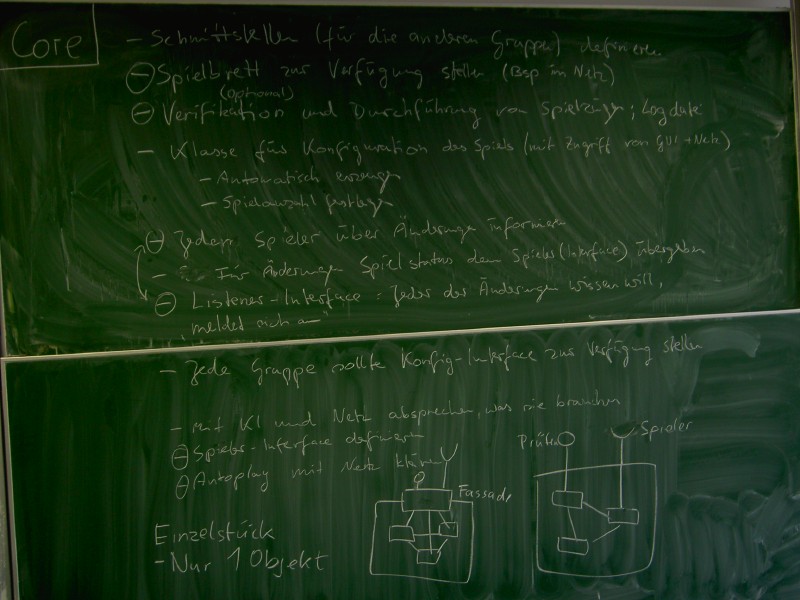 Core
- Schnittstellen (für die anderen Gruppen) definieren
- Spielbrett zur Verfügung stellen (Bsp im Netz)
(Optional)
- Verifikation und Durchführung von Spielzügen; Logdatei
- Klasse fürs Konfiguration des Spiels (mit Zugriff von GUI + Netz)
- Automatisch erzeugen
- Spielanzahl festlegen
- Jeden Spieler über Änderungen informieren
- Für Änderungen Spielstatus dem Spieler (Interface) übergeben
- Listener-Interface: Jeder der Änderungen wissen will,
meldet sich an
- Jede Gruppe sollte Konfig-Interface zur Verfügung stellen
- mit KI und Netz absprechen, was sie brauchen
- Spieler-Interface definieren
- Autoplay mit Netz klären
Prüfen
Spieler
Fassade
Einzelstück
- Nur 1 Objekt